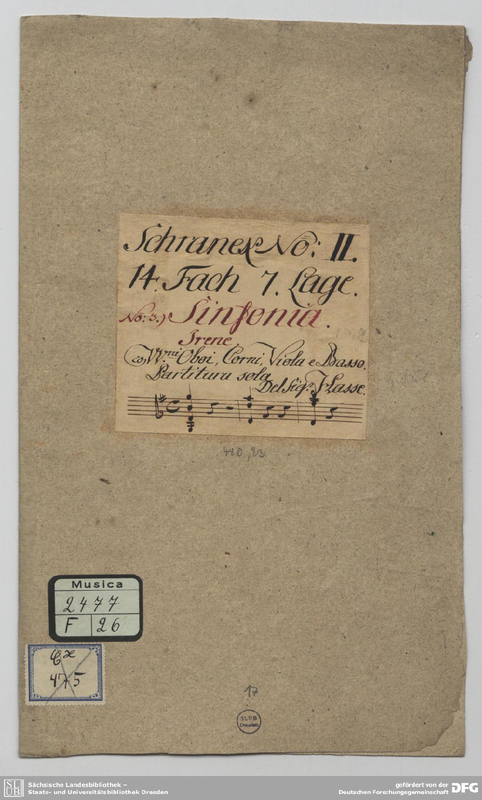 Schranck No: II.
14. Fach 7. Lage.
No: 3.) Sinfonia.
Irene,
co VV.ni Oboi, Corni, Viola e Basso.
Partitura sola
Del Sigr. Hasse.
Musica
2477
F 26
Cx
475
17
SLUB
Dresden
Sächsische Landesbibliothek –
Staats- und Universitätsbibliothek Dresden
gefördert von der
Deutschen Forschungsgemeinschaft DFG